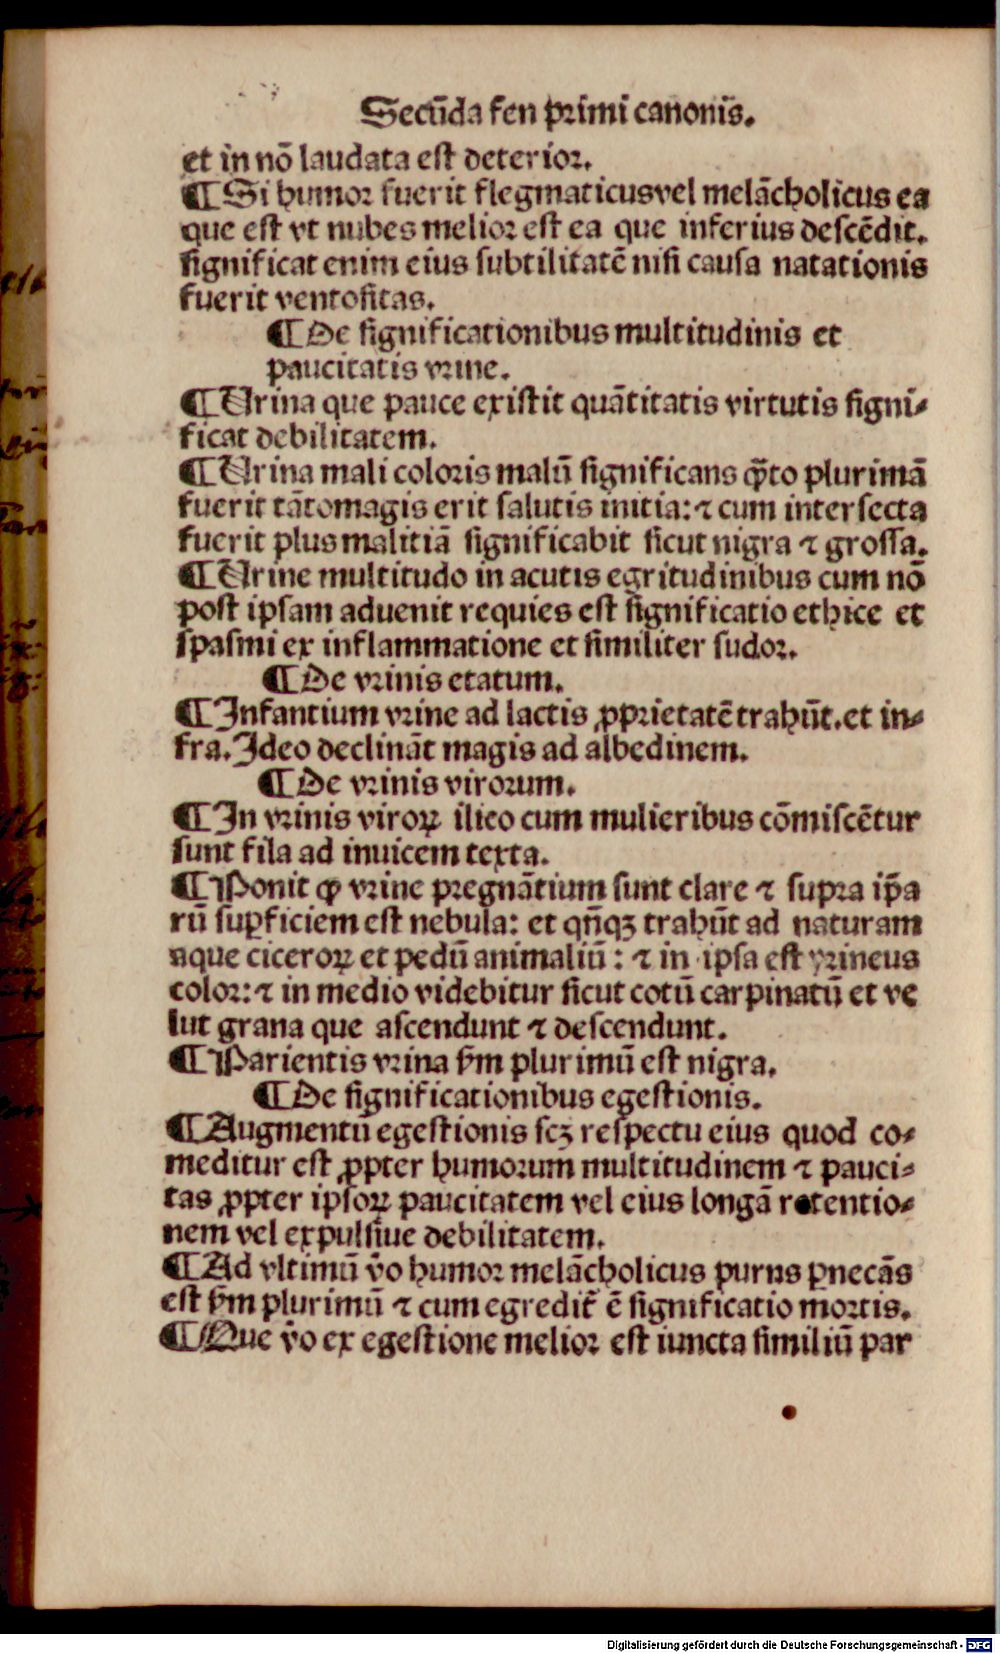 Secūda fen primi canonis.
et in nō laudata est deterior.
¶ Si humor fuerit flegmaticus vel melācholicus ea
que est vt nubes melior est ea que inferius descēdit.
significat enim eius subtilitatē nisi causa natationis
fuerit ventositas.
¶ De significationibus multitudinis et
paucitatis vrine.
¶ Urina que pauce existit quātitatis virtutis signi⸗
ficat debilitatem.
¶ Urina mali coloris malū significans q̄̃to plurimā
fuerit tātomagis erit salutis initia: ⁊ cum intersecta
fuerit plus malitiā significabit sicut nigra ⁊ grossa.
¶ Urine multitudo in acutis egritudinibus cum nō
post ipsam aduenit requies est significatio ethice et
spasmi ex inflammatione et similiter sudor.
¶ De vrinis etatum.
¶ Infantium vrine ad lactis ꝓprietatē trahūt. et in⸗
fra. Ideo declināt magis ad albedinem.
¶ De vrinis virorum.
¶ In vrinis viroꝝ ilico cum mulieribus cōmiscētur
sunt fila ad inuicem texta.
¶ Ponit ꝙ vrine pregnātium sunt clare ⁊ supra ip̄a
rū suꝑficiem est nebula: et qn̄qꝫ trahūt ad naturam
aque ciceroꝝ et pedū animaliū: ⁊ in ipsa est vrineus
color: ⁊ in medio videbitur sicut cotū carpinatū et ve
lut grana que ascendunt ⁊ descendunt.
¶ Parientis vrina ẜm plurimū est nigra.
¶ De significationibus egestionis.
¶ Augmentū egestionis scꝫ respectu eius quod co⸗
meditur est ꝓpter humorum multitudinem ⁊ pauci⸗
tas ꝓpter ipsoꝝ paucitatem vel eius longā retentio⸗
nem vel expulsiue debilitatem.
¶ Ad vltimū v̄o humor melācholicus purus ꝑnecās
est ẜm plurimū ⁊ cum egredit᷑ ē significatio mortis.
¶ Que v̄o ex egestione melior est iuncta similiū par
Digitalisierung gefördert durch die Deutsche Forschungsgemeinschaft - DFG